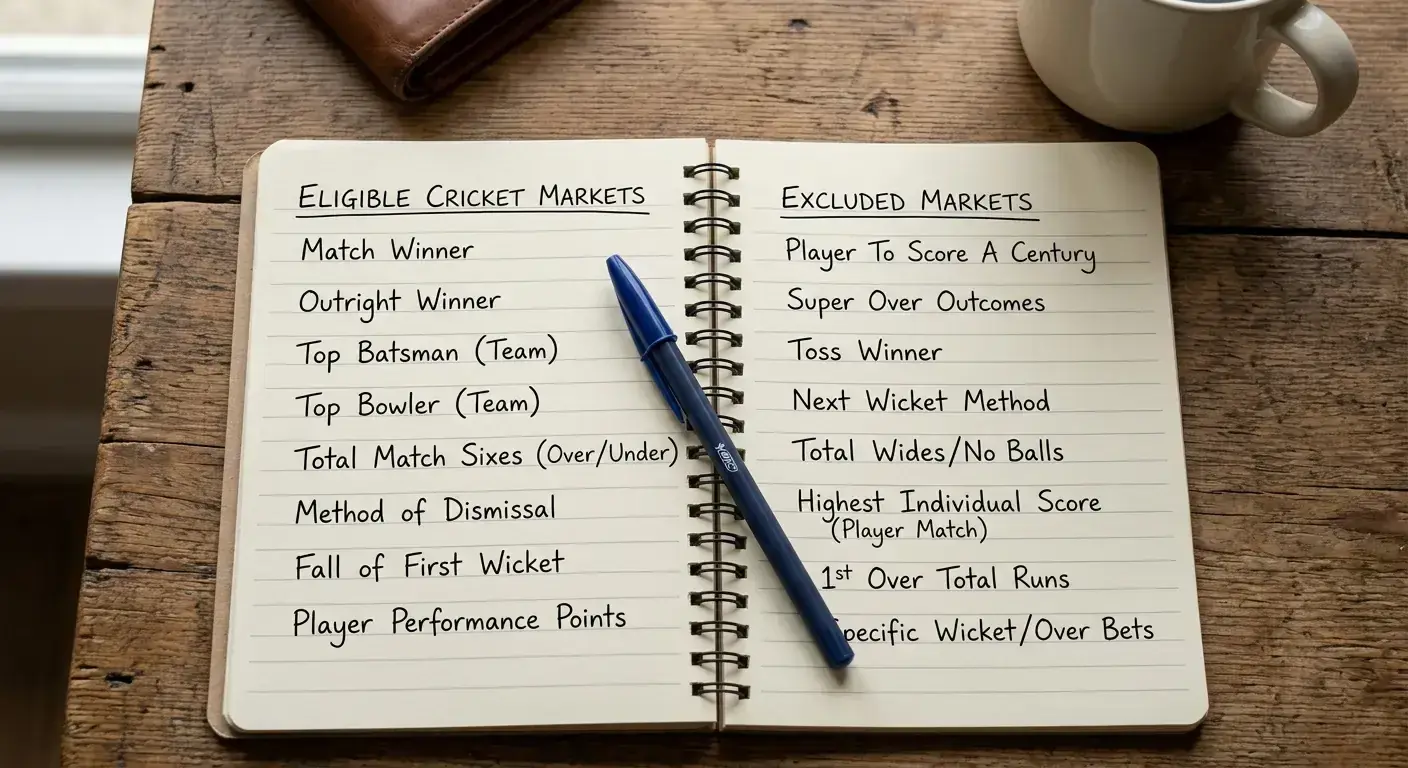 ELIGIBLE CRICKET MARKETS
Match Winner
Outright Winner
Top Batsman (Team)
Top Bowler (Team)
Total Match Sixes (Over/Under)
Method of Dismissal
Fall of First Wicket
Player Performance Points
EXCLUDED MARKETS
Player To Score A Century
Super Over Outcomes
Toss Winner
Next Wicket Method
Total Wides/No Balls
Highest Individual Score
(Player Match)
1st Over Total Runs
pecific Wicket/Over Bets